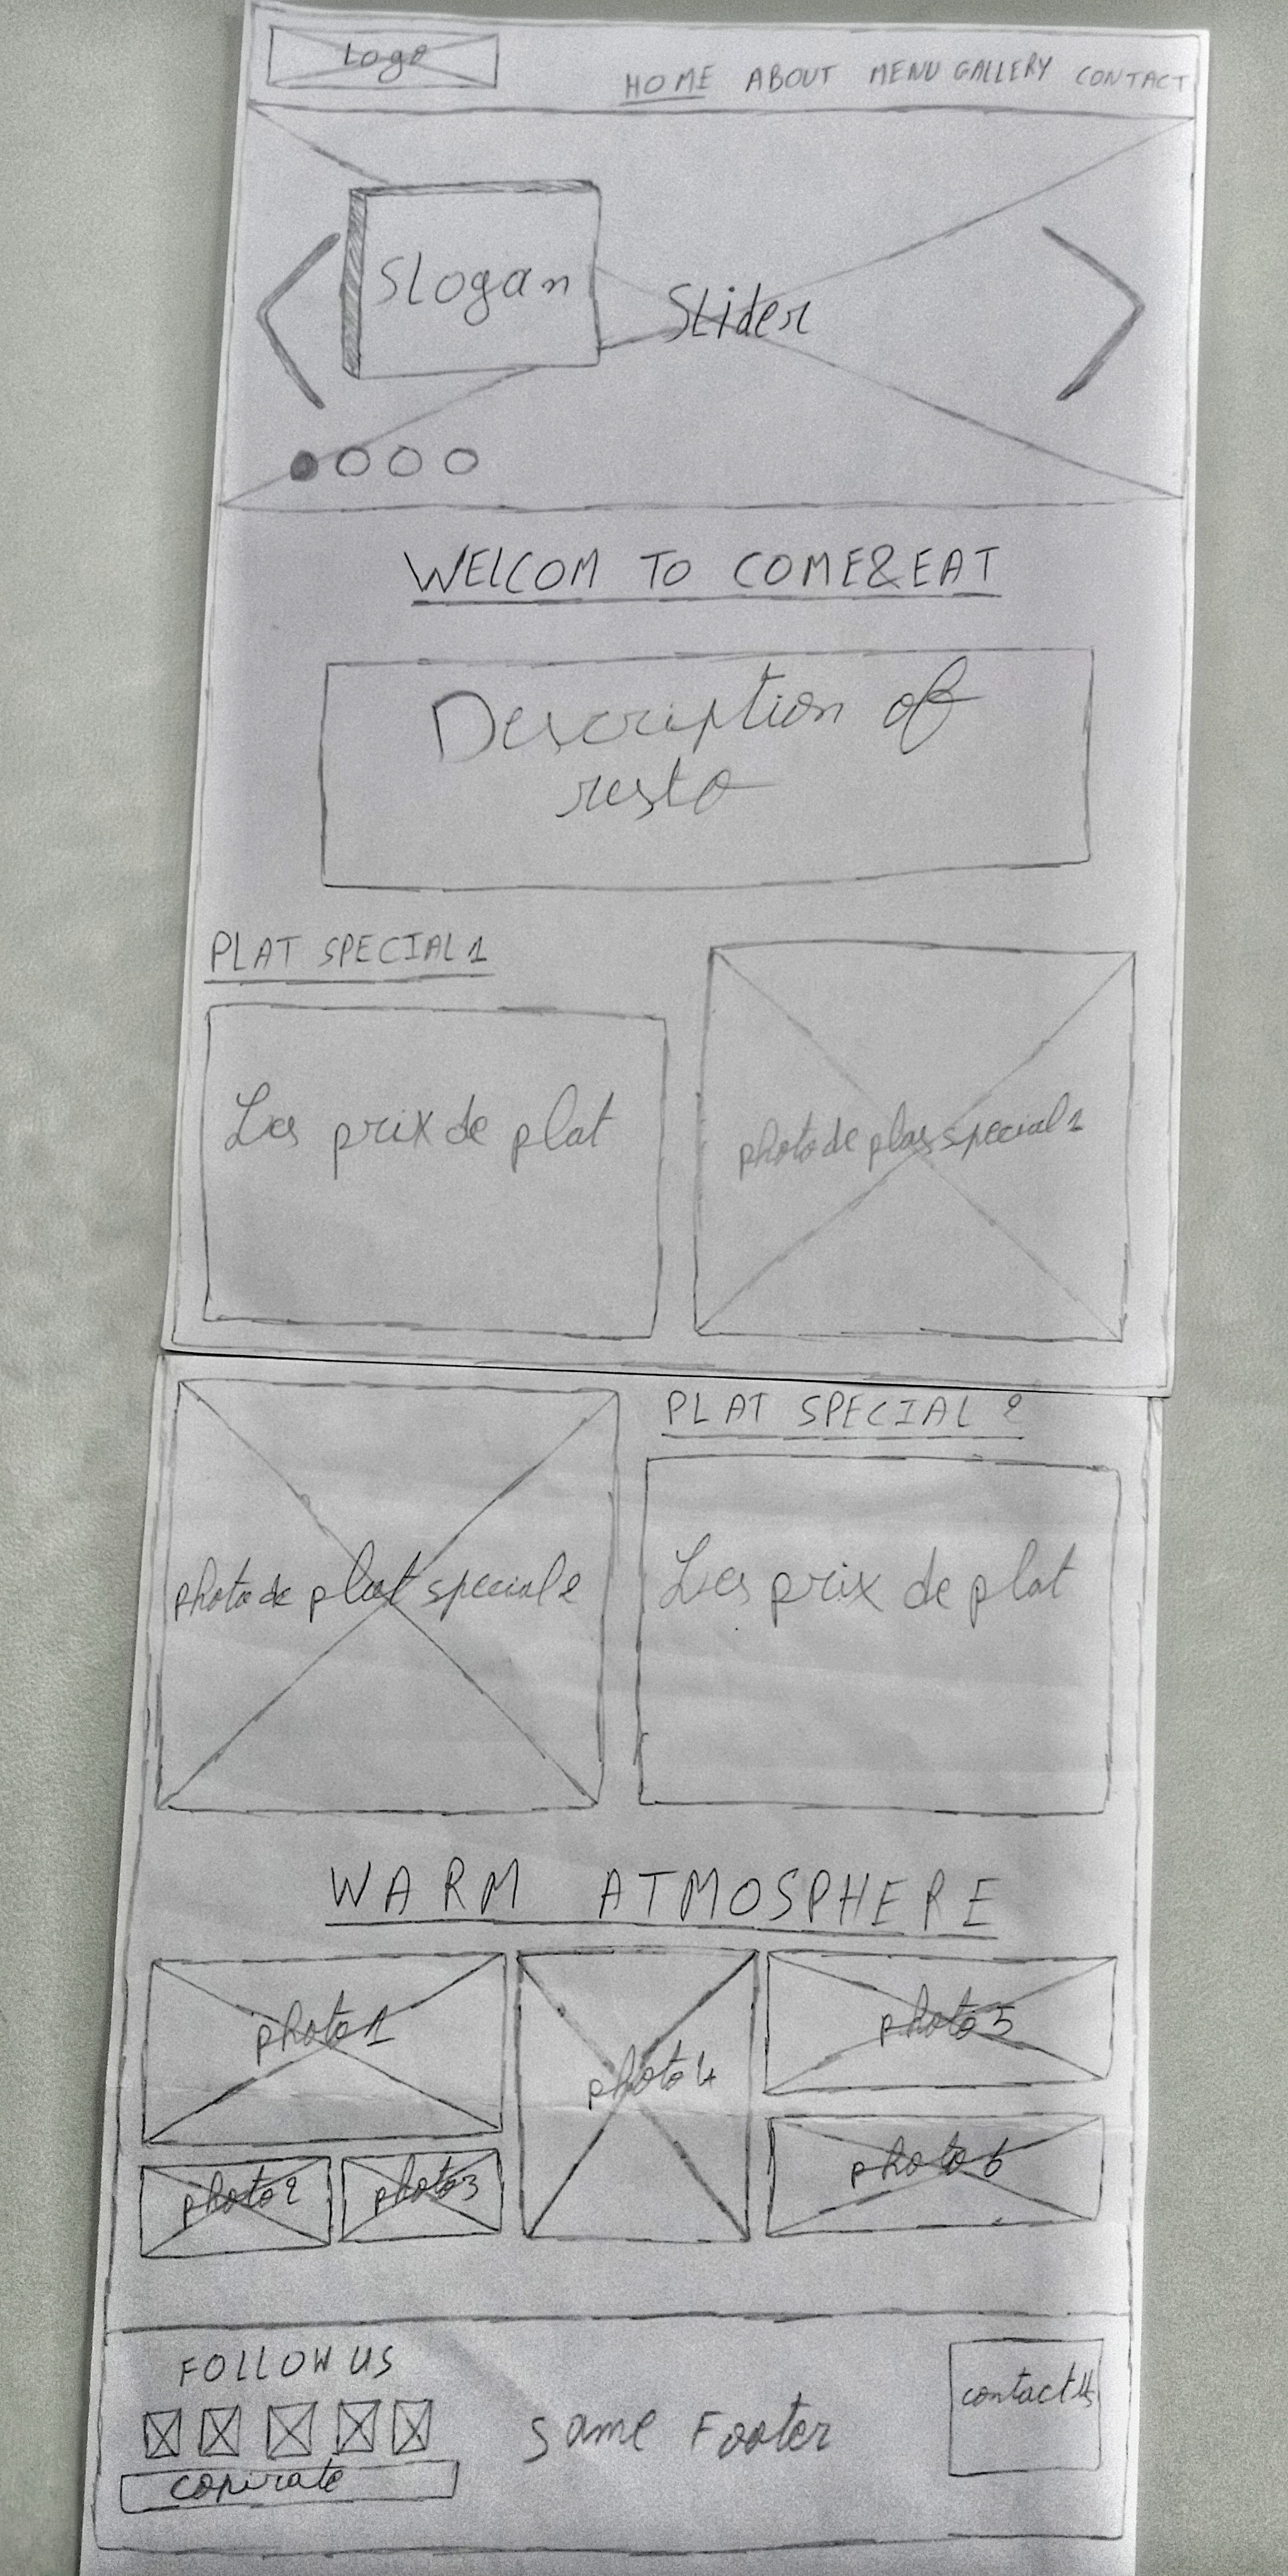 Logo
HOME ABOUT MENU GALLERY CONTACT
Slogan
Slider
WELCOM TO COME&EAT
Description of
resto
PLAT SPECIAL 1
Les prix de plat
photo de plat special 1
PLAT SPECIAL 2
photo de plat special 2
Les prix de plat
WARM ATMOSPHERE
photo 1
photo 4
photo 5
photo 2
photo 3
photo 6
FOLLOW US
contact us
Same Footer
copirate